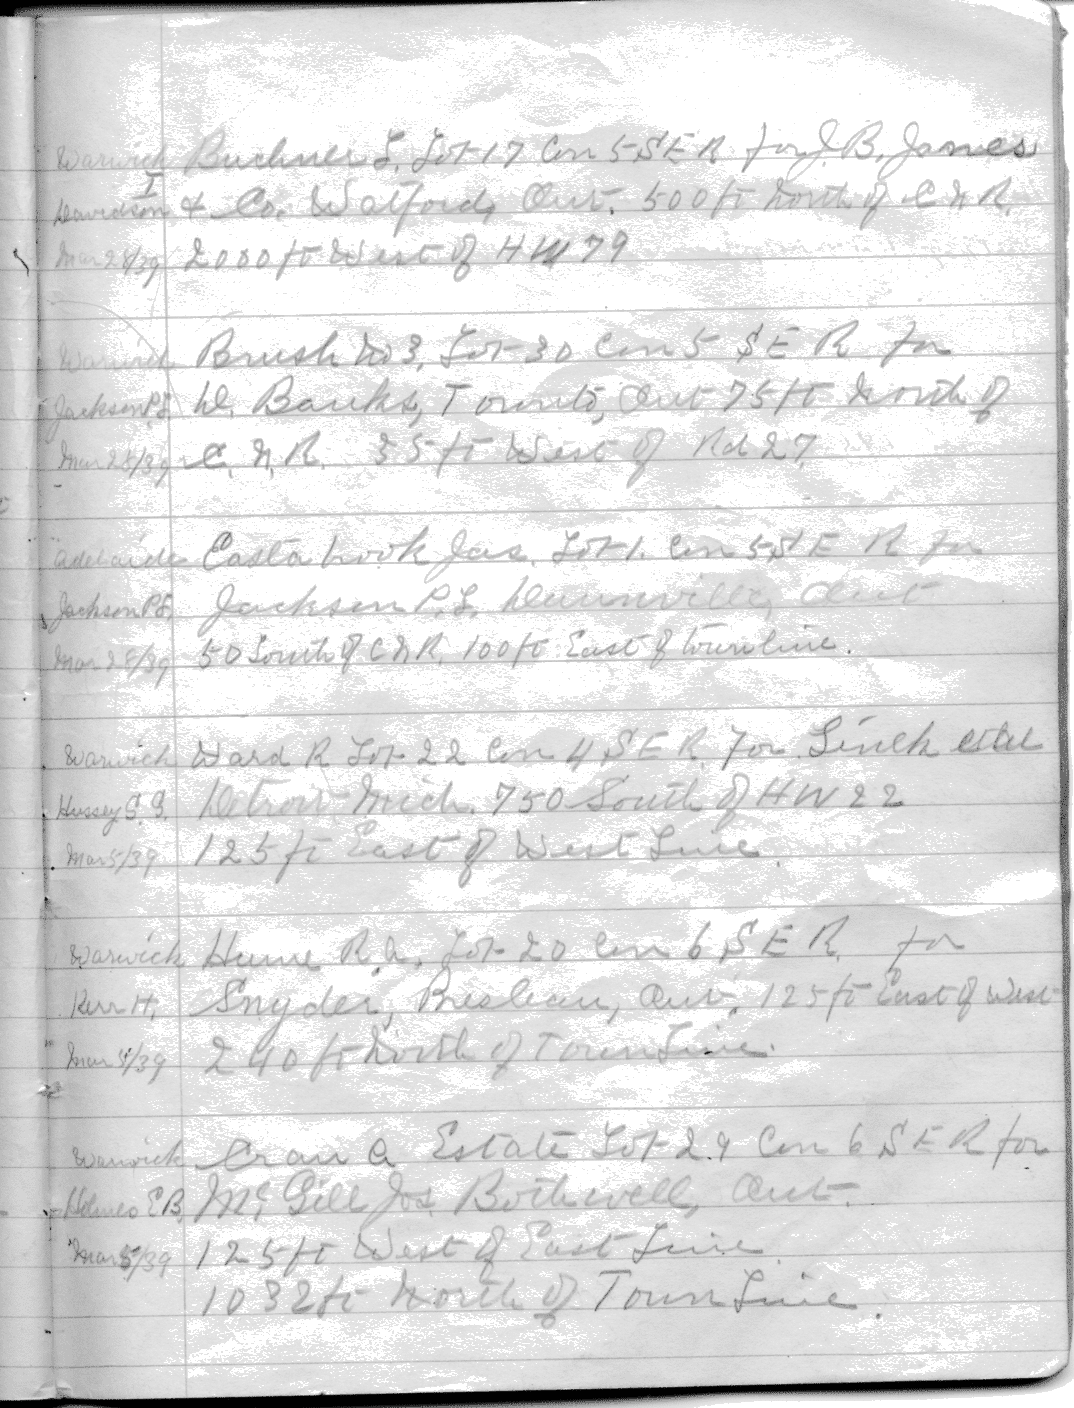 Warwick Buchner L. Lot 17 Con 5 S E R for J. B. James
Davidson I & Co. Watford, Ont. 500 ft North of C N R.
Mar 28/39 2000 ft West of H W 79
Warwick Brush No 3, Lot 30 Con 5 S E R for
Jackson P.L. D. Banks, Toronto, Ont 75 ft North of
Mar 28/39 C. N. R. 35 ft West of Rd 27
Adelaide Eastabrook Jas. Lot 1. Con 5 S E R for
Jackson P.L. Jackson P. L. Dunnville, Ont
Mar 28/39 50 South of C N R. 100 ft East of Townline.
Warwick Ward R Lot 22 Con 4 S E R. for
Hussey Detroit Mich. 750 South of H W 22
Mar 5/39 125 ft East of West Line.
Warwick Hume R. A. Lot 20 Con 6 S E R. for
Kerr H. Snyder, Breslau, Ont. 125 ft East of West
Mar 4/39 240 ft North of Town Line.
Warwick A Estate Lot 29 Con 6 S E R for
Holmes E B. Mc Gill Jos. Bothwell, Ont.
Mar 5/39 125 ft West of East Line
1032 ft North of Town Line.